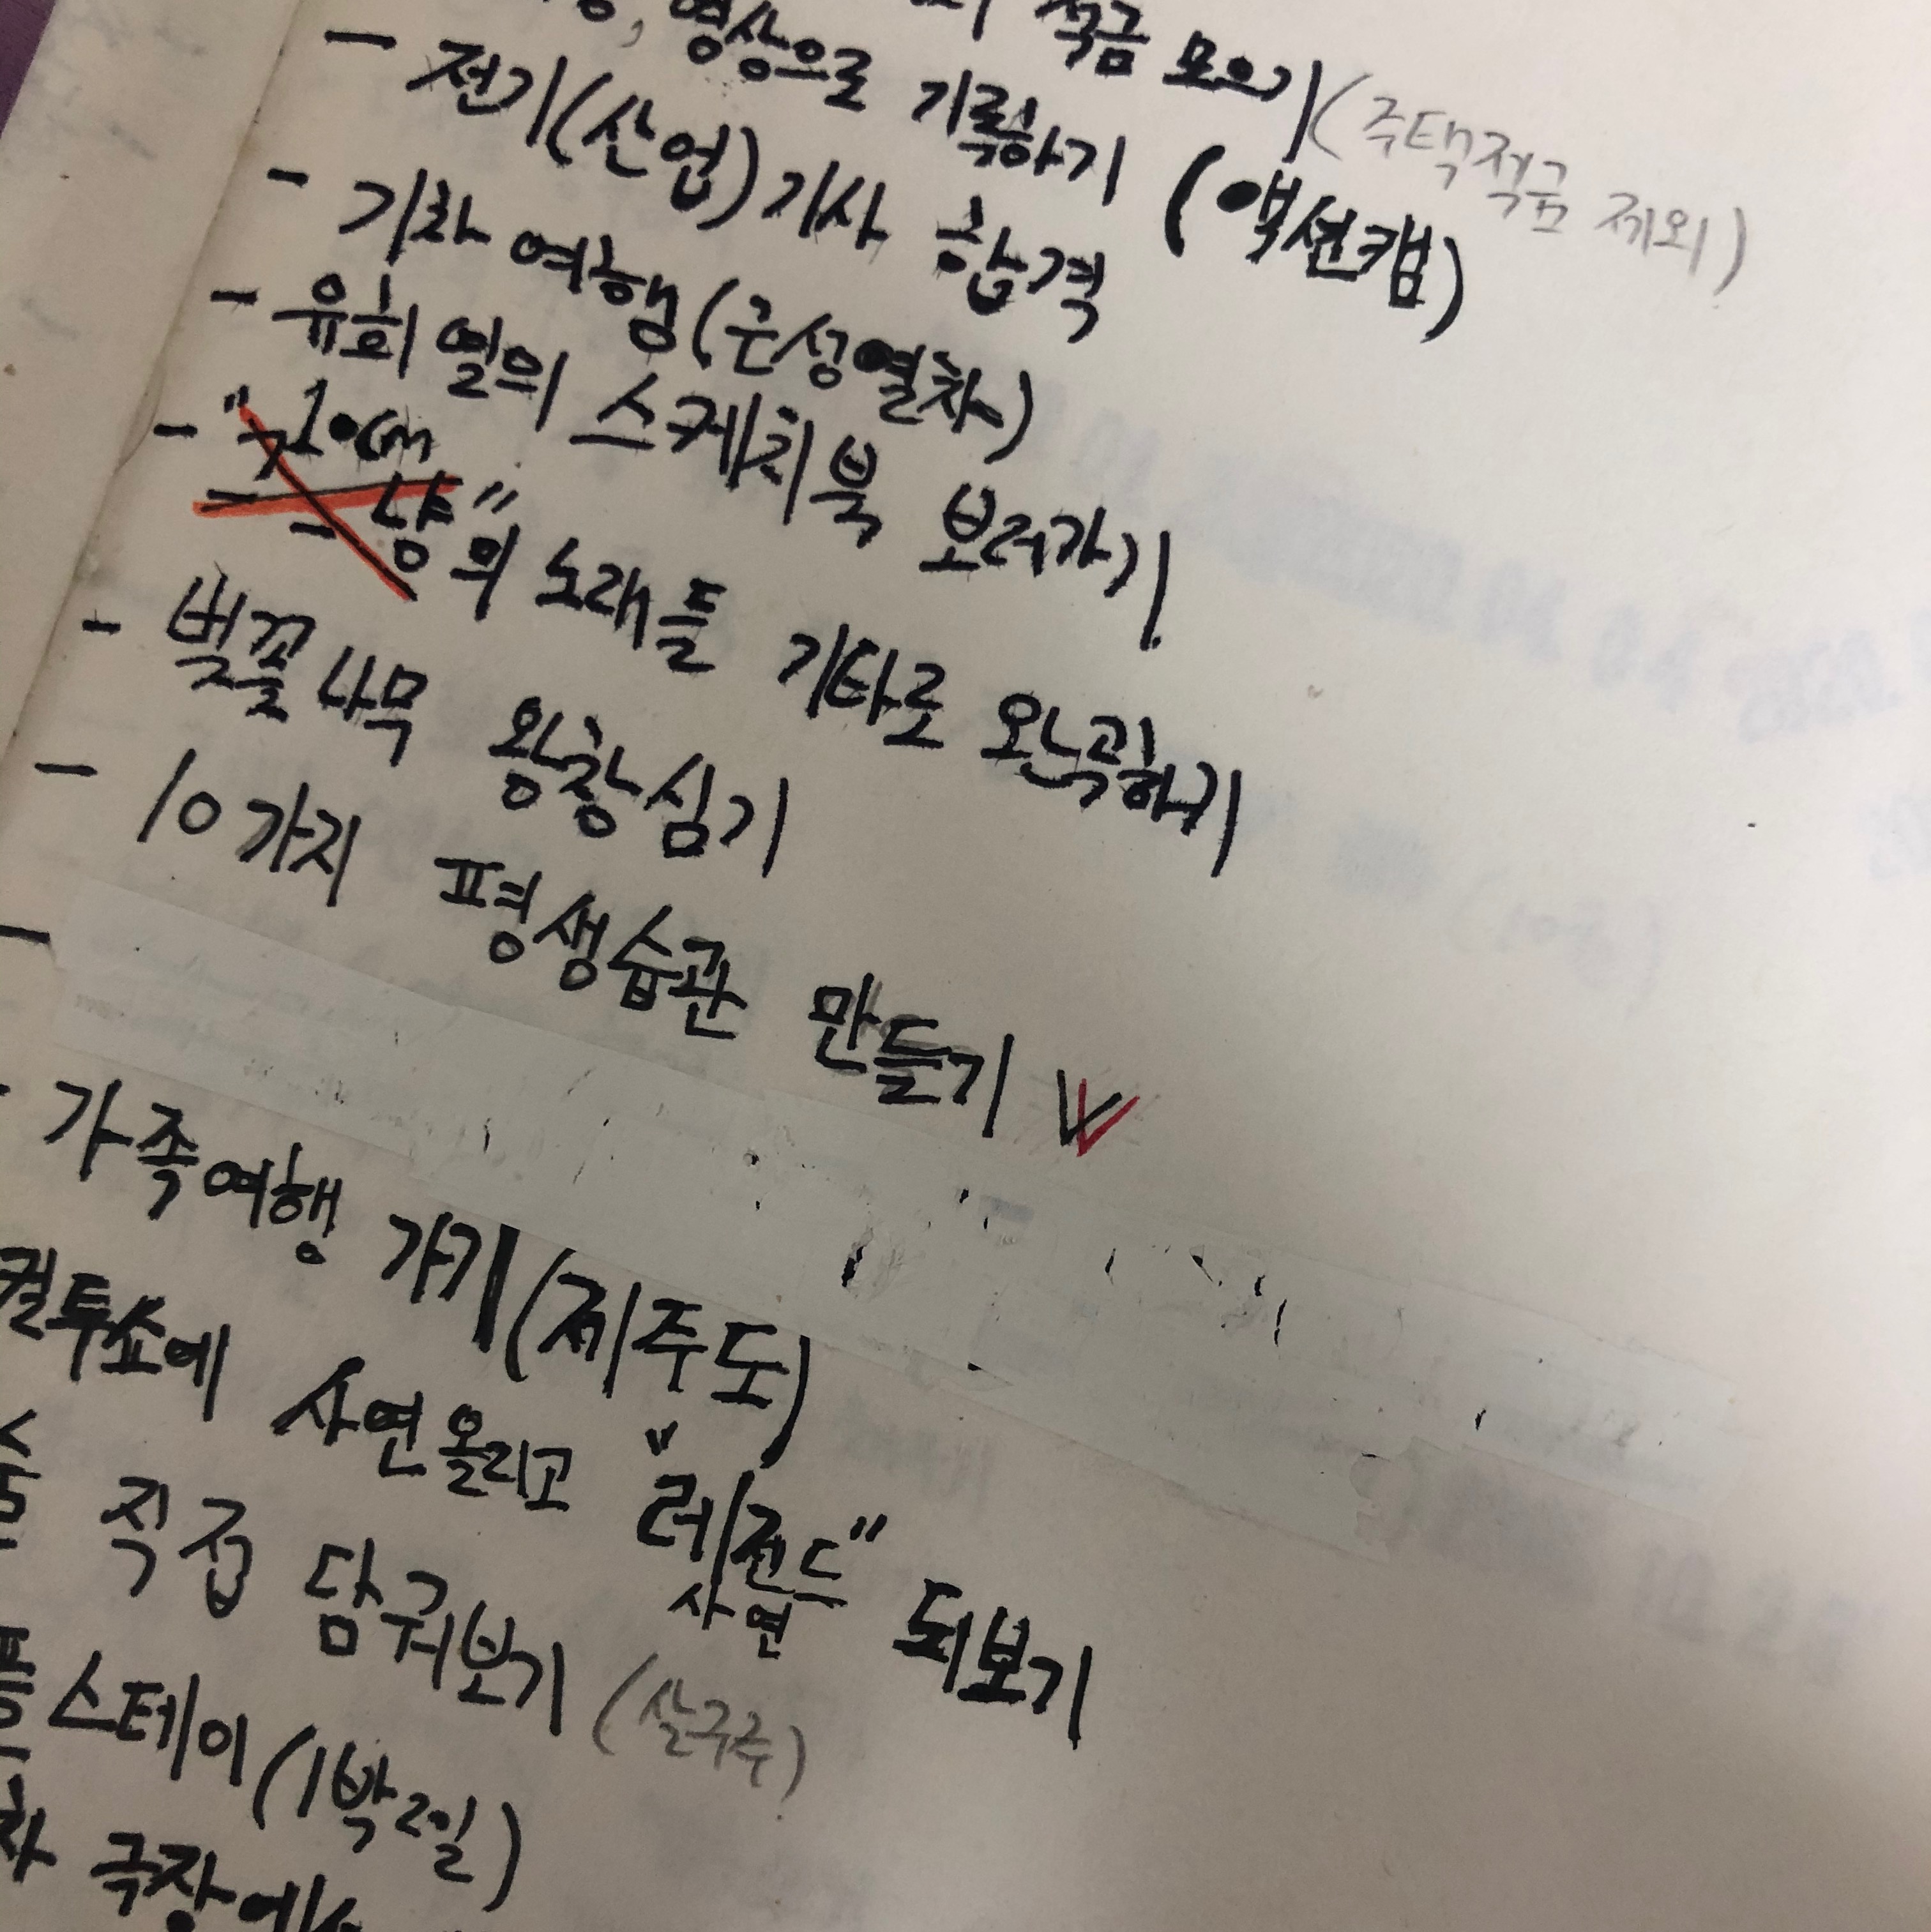 적금 모으기 (주택적금 제외)
영상으로 기록하기 (액션캠)
- 전기(산업)기사 합격
- 기차 여행(근성열차)
- 유희열의 스케치북 보러가기
- "10cm
냥"의 노래들 기타로 완곡하기
- 벚꽃나무 왕창심기
- 10가지 평생습관 만들기 V
- 가족여행 가기(제주도)
컬투쇼에 사연올리고 "레전드" 되보기
사연
술 직접 담궈보기 (살구주)
플스테이(1박2일)
차 극장에서